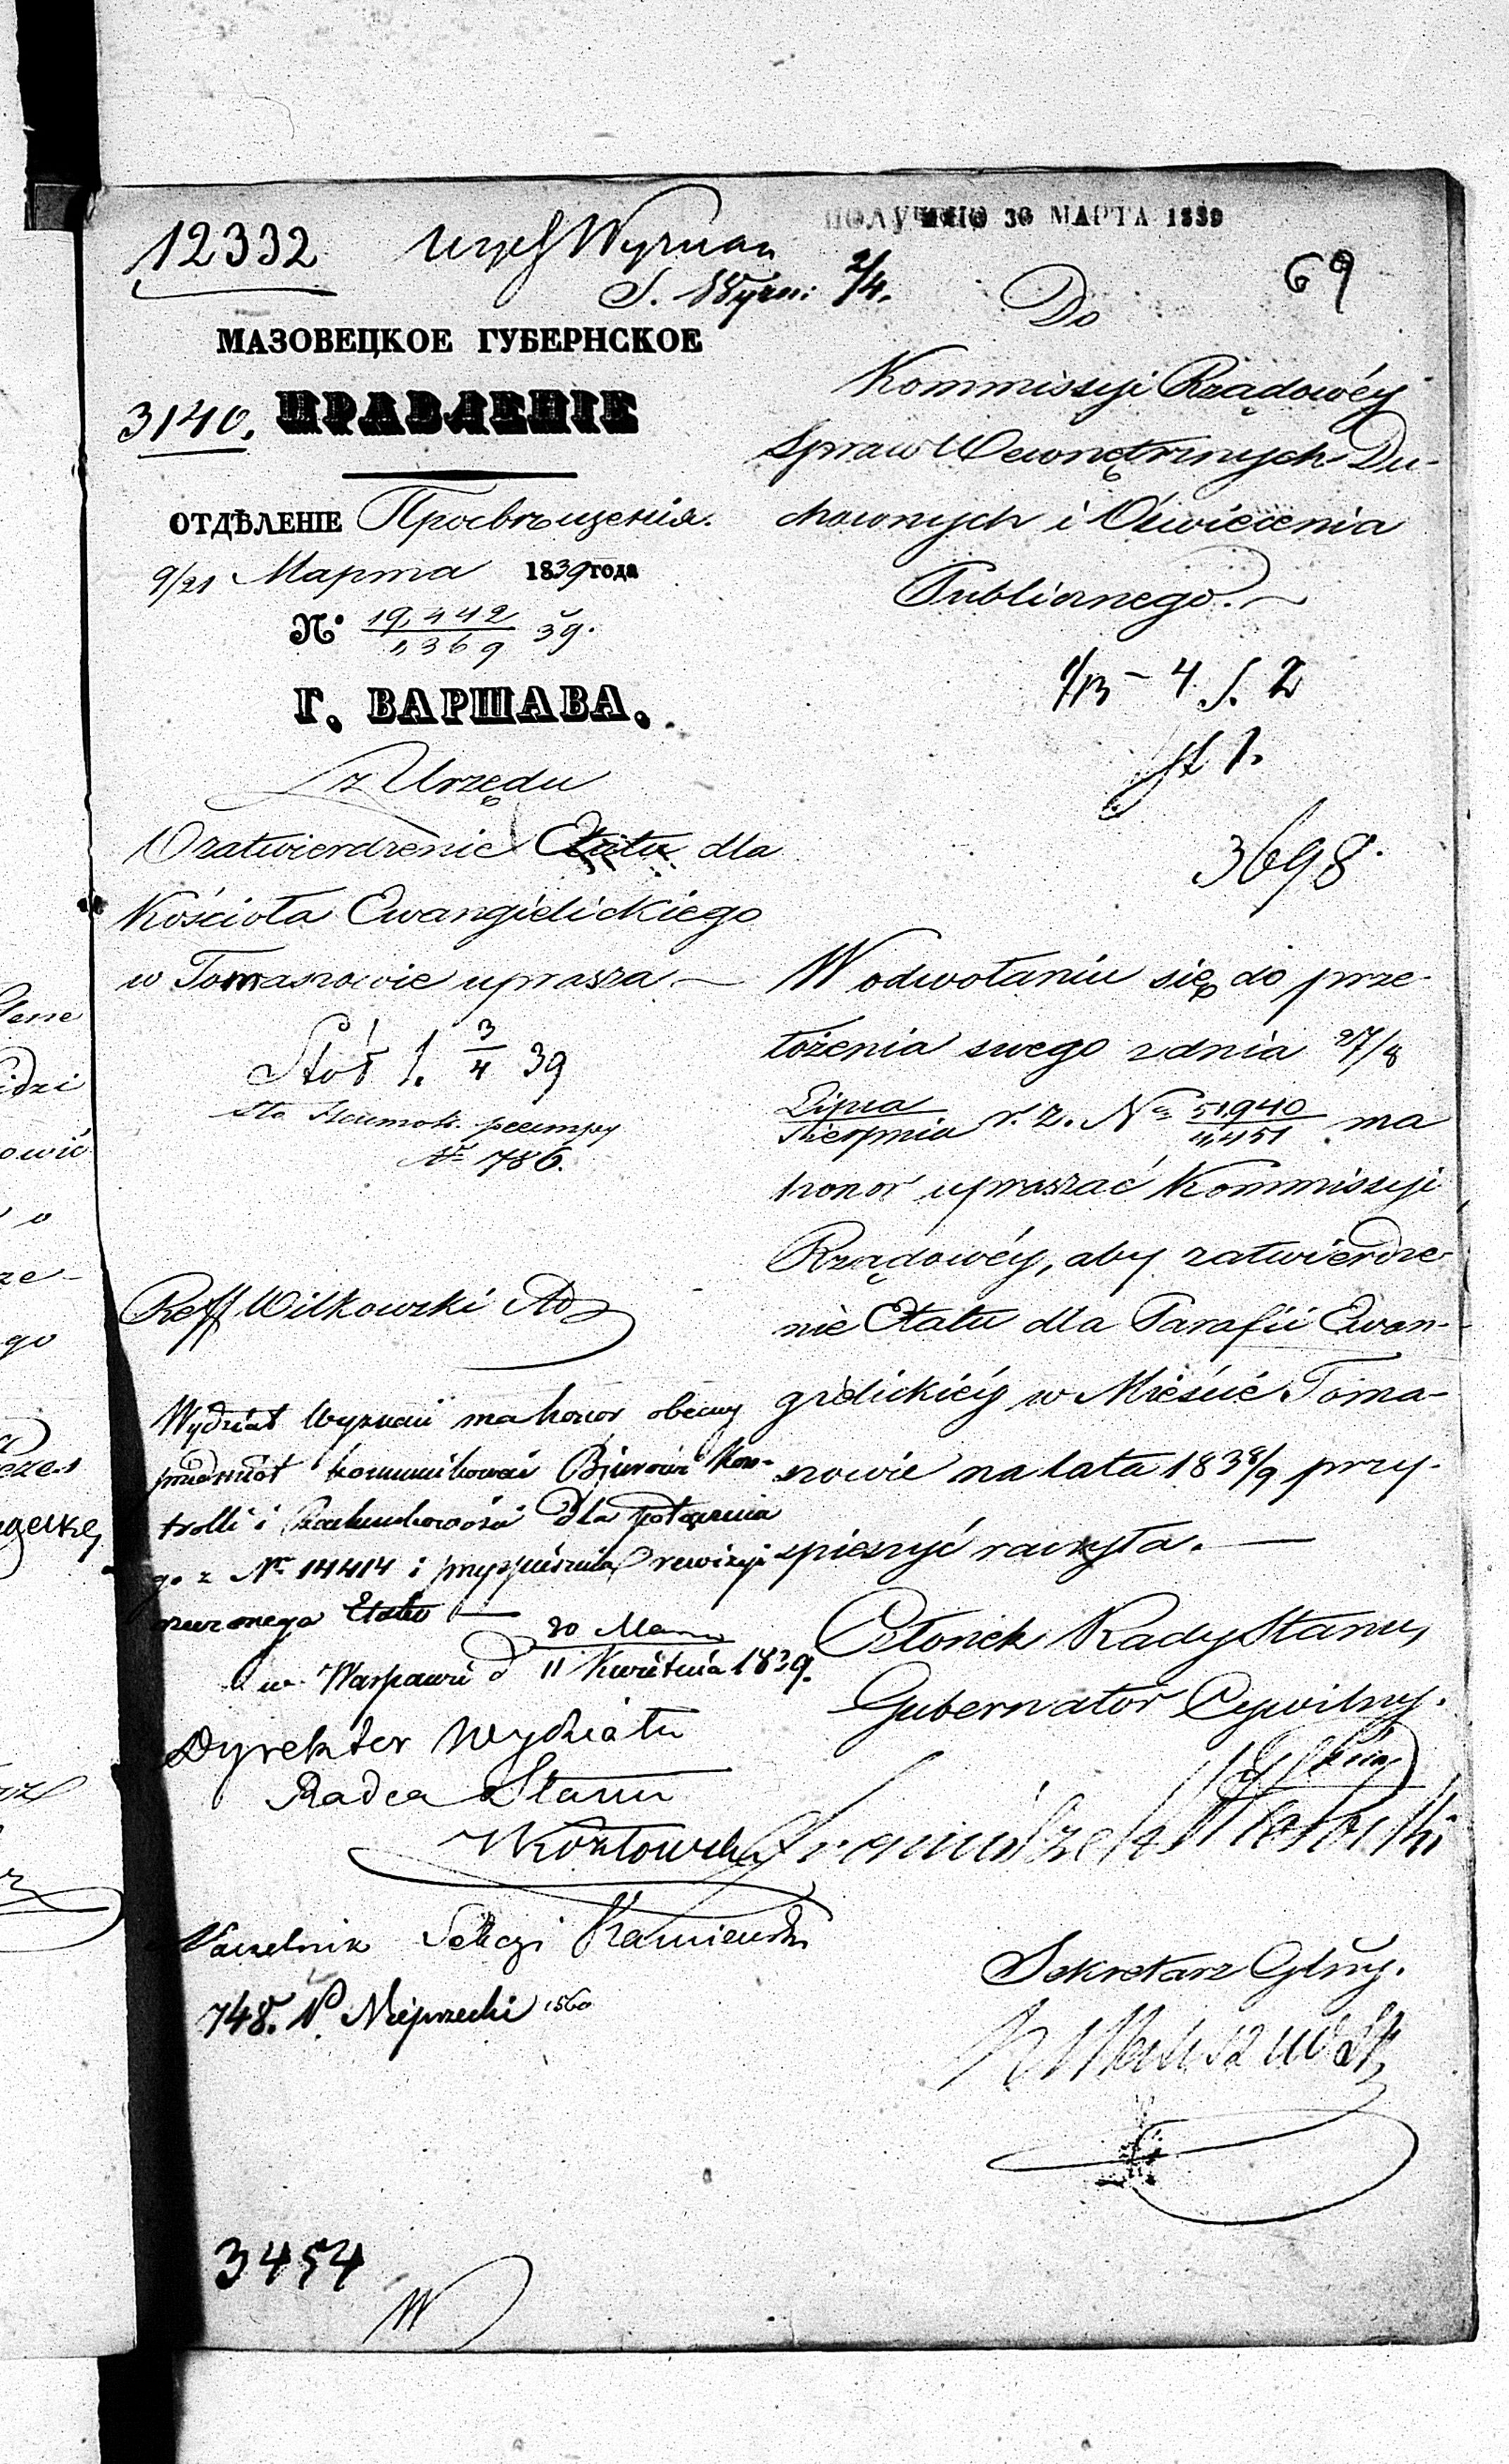 ПОЛУЧЕНО 30 МАРТА 1839
12332
Wyznań
S. Wyzn: 2/4.
69
МАЗОВЕЦКОЕ ГУБЕРНСКОЕ
3140. ПРАВЛЕНІЕ
ОТДѢЛЕНІЕ Просвѣщенія.
9/21 Марта 1839 года
№ 19,442/4369 39.
Г. ВАРШАВА.
z Urzędu
O zatwierdzenie Etatu dla
Kościoła Ewangielickiego
w Tomaszowie uprasza —
3/4 39
Nr 786.
Reff Wilkowski
Wydział Wyznań ma honor obecny
przedmiot kommunikować Biurowi Kon-
trolli i Rachunkowości dla połączenia
go z Nr 14414 i przyspieszenia rewizyi
rzeczonego Etatu —
w Warszawie d 30 Marca/11 Kwietnia 1839.
Dyrektor Wydziału
Radca Stanu
Kozłowski
Naczelnik Sekcyi Kamieński
748. 1560
3454
Do
Kommissyi Rządowéy
Spraw Wewnętrznych Du-
chownych i Oświecenia
Publicznego. —
3698.
W odwołaniu się do prze-
łożenia swego z dnia 27/8
Lipca/Sierpnia r. z. Nr 51940/4451 ma
honor upraszać Kommissyi
Rządowéy, aby zatwierdze-
nie Etatu dla Parafii Ewan-
gielickiéy w Mieście Toma-
szowie na lata 1838/9 przy-
spieszyć raczyła. —
Członek Rady Stanu,
Gubernator Cywilny.
Sekretarz Glny.